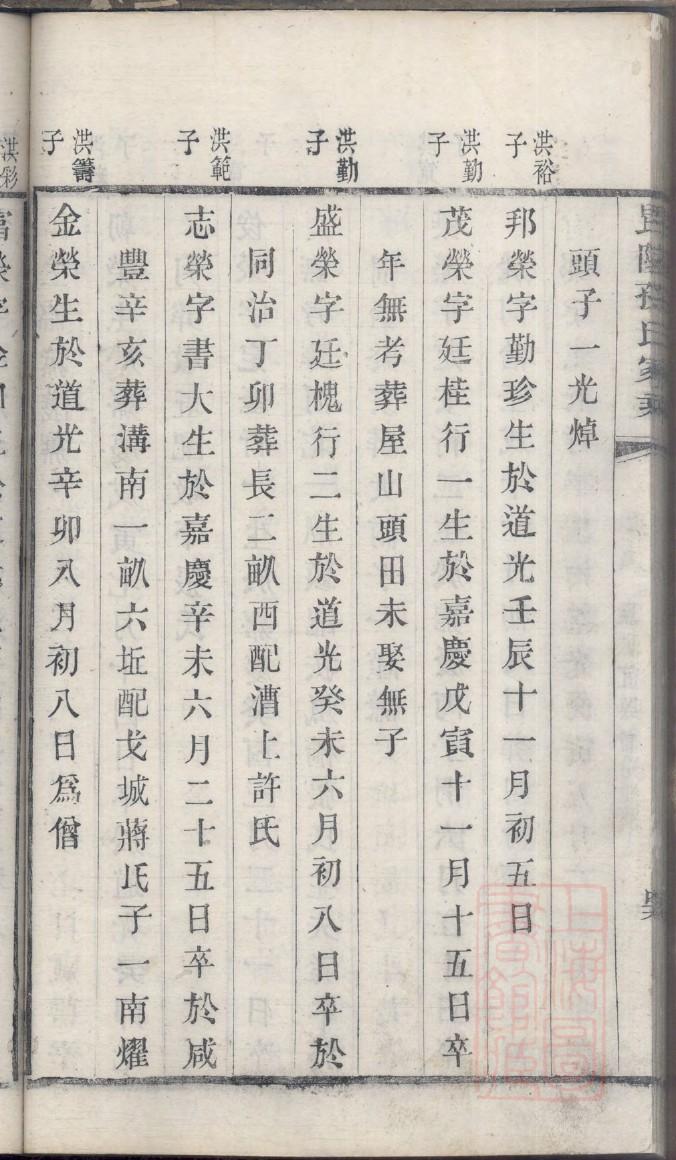 頭子一光焯
洪裕子
邦榮字勤珍生於道光壬辰十一月初五日
洪勤子
茂榮字廷桂行一生於嘉慶戊寅十一月十五日卒
年無考葬屋山頭田未娶無子
洪勤子
盛榮字廷槐行二生於道光癸未六月初八日卒於
同治丁卯葬長二畝西配漕上許氏
洪範子
志榮字書大生於嘉慶辛未六月二十五日卒於咸
豐辛亥葬溝南一畝六坵配戈城蔣氏子一南燿
洪籌子
金榮生於道光辛卯八月初八日為僧
洪彩